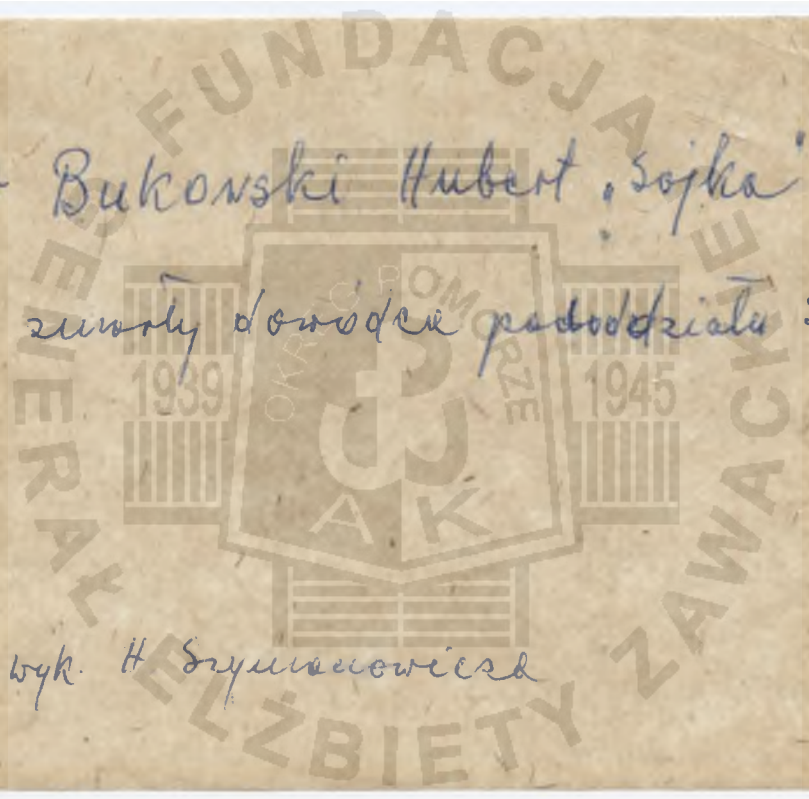 - Bukowski Hubert „Sojka”
zmarły dowódca pododdziału
wyk. H Szymanowicza
FUNDACJA
GENERAŁ ELŻBIETY ZAWACKIEJ
OKRĘG POMORZE
1939
1945
AK